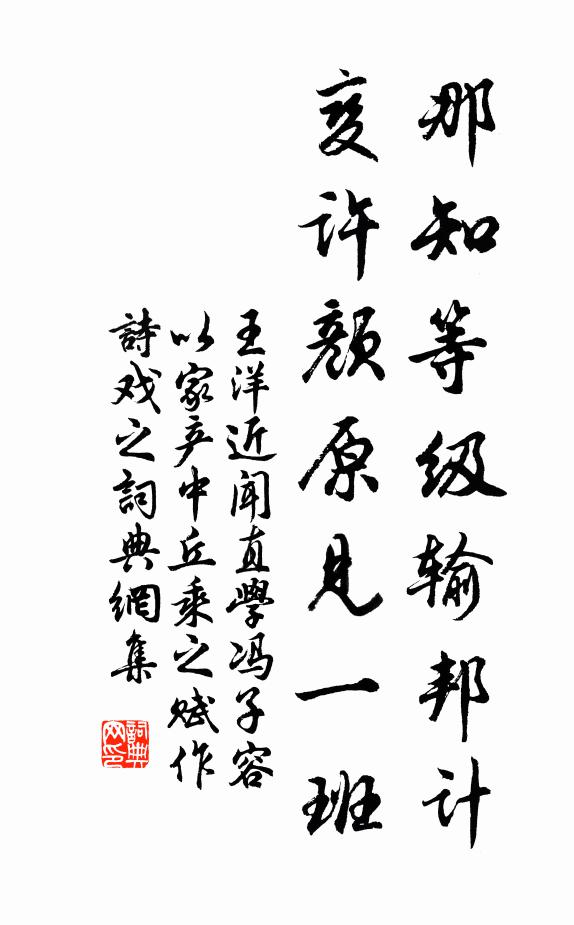 那知等级输邦计
更许颜原见一班
王洋近闻直學冯子容
以家产中丘乘之赋作
詩戏之詞典網集
詞典网印